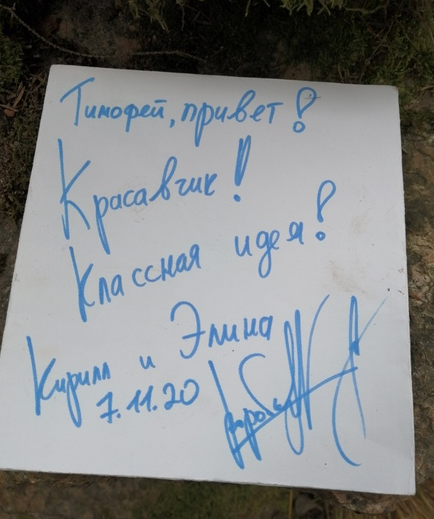 Тимофей, привет!
Красавчик!
Классная идея!
Кирилл и Элина
7.11.20